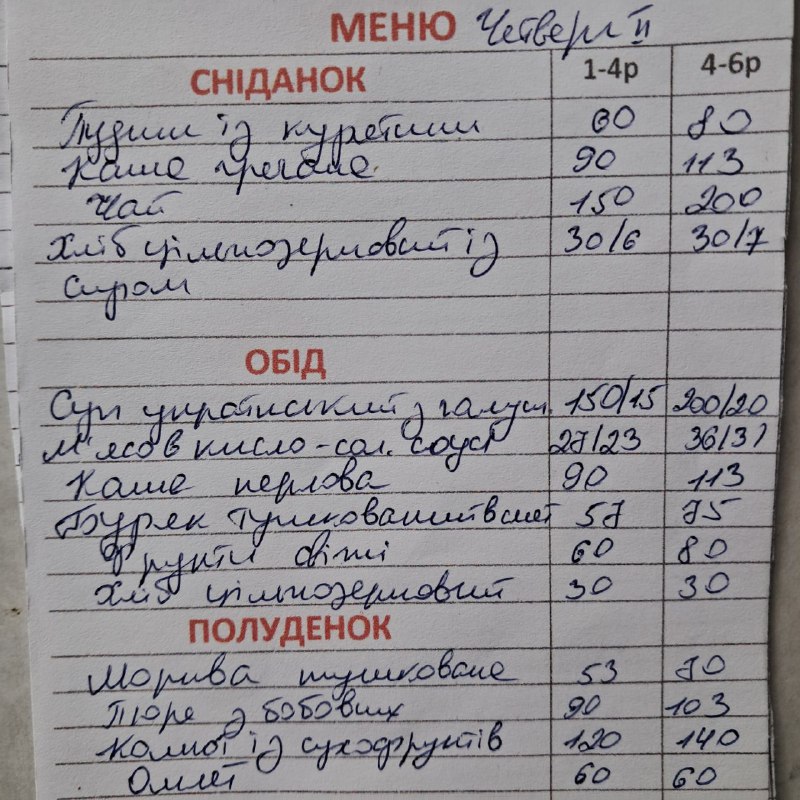 МЕНЮ Четверг II
СНІДАНОК 1-4р 4-6р
Пудинг із курятини 60 80
Каша гречана 90 113
Чай 150 200
Хліб цільнозерновий із 30/6 30/7
сиром
ОБІД
Суп український з галуш. 150/15 200/20
М'ясо в кисло-сол. соусі 27/23 36/31
Каша перлова 90 113
Буряк тушкований в смет 57 75
Фрукти свіжі 60 80
Хліб цільнозерновий 30 30
ПОЛУДЕНОК
Морква тушкована 53 70
Пюре з бобових 90 103
Компот із сухофруктів 120 140
Омлет 60 60